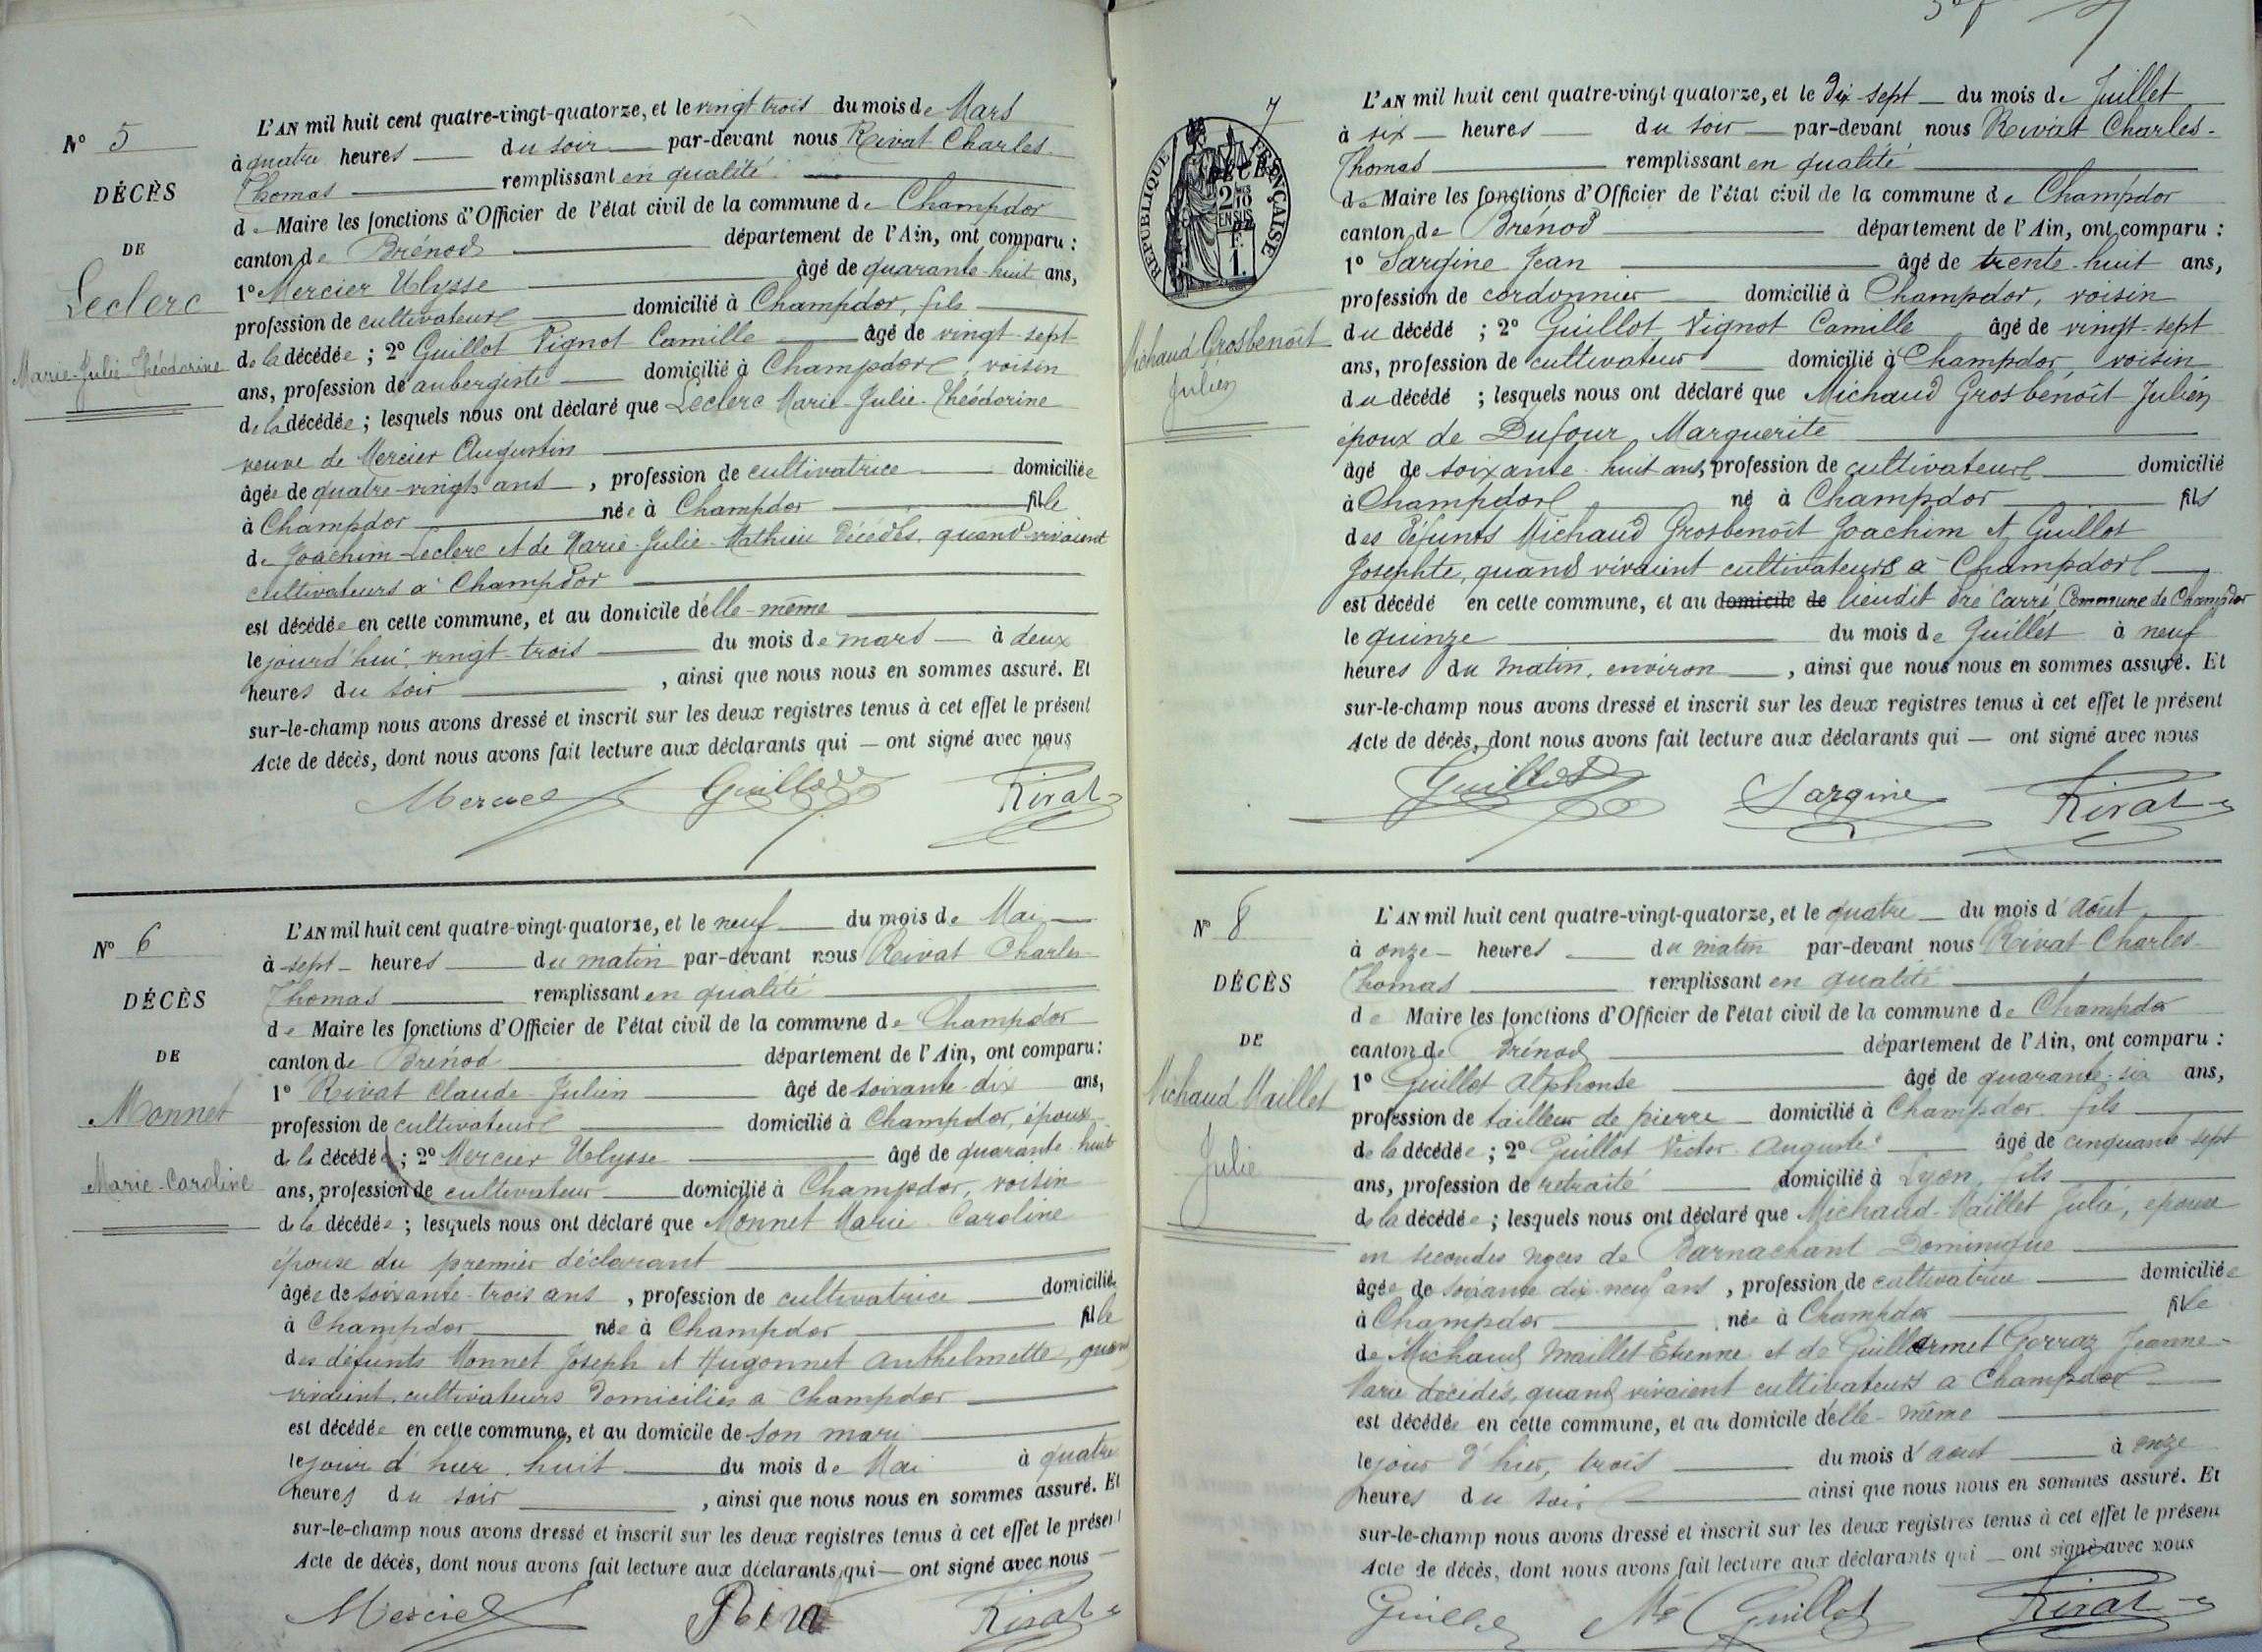 N° 5
DÉCÈS
DE
Leclerc
Marie-Julie-Théodorine
L'AN mil huit cent quatre-vingt-quatorze, et le vingt trois du mois de Mars
à quatre heures du soir par-devant nous Rivat Charles-
Thomas remplissant en qualité
de Maire les fonctions d'Officier de l'état civil de la commune de Champdor
canton de Brénod département de l'Ain, ont comparu :
1° Mercier Ulysse âgé de quarante-huit ans,
profession de cultivateur domicilié à Champdor, fils
de la décédée ; 2° Guillot Vignot Camille âgé de vingt-sept
ans, profession de aubergiste domicilié à Champdor, voisin
de la décédée ; lesquels nous ont déclaré que Leclerc Marie-Julie-Théodorine
veuve de Mercier Augustin
âgée de quatre-vingts ans, profession de cultivatrice domiciliée
à Champdor née à Champdor fille
de Joachim Leclerc et de Marie-Julie-Mathieu décédés, quand vivaient
cultivateurs à Champdor
est décédée en cette commune, et au domicile d'elle-même
le jourd'hui, vingt-trois du mois de mars à deux
heures du soir, ainsi que nous nous en sommes assuré. Et
sur-le-champ nous avons dressé et inscrit sur les deux registres tenus à cet effet le présent
Acte de décès, dont nous avons fait lecture aux déclarants qui — ont signé avec nous
Mercier Guillot Rivat
N° 6
DÉCÈS
DE
Monnet
Marie-Caroline
L'AN mil huit cent quatre-vingt-quatorze, et le neuf du mois de Mai
à sept heures du matin par-devant nous Rivat Charles
Thomas remplissant en qualité
de Maire les fonctions d'Officier de l'état civil de la commune de Champdor
canton de Brénod département de l'Ain, ont comparu :
1° Rivat Claude-Julien âgé de soixante-dix ans,
profession de cultivateur domicilié à Champdor, époux
de la décédée ; 2° Mercier Ulysse âgé de quarante-huit
ans, profession de cultivateur domicilié à Champdor, voisin
de la décédée ; lesquels nous ont déclaré que Monnet Marie-Caroline
épouse du premier déclarant
âgée de soixante-trois ans, profession de cultivatrice domiciliée
à Champdor née à Champdor fille
des défunts Monnet Joseph et Hugonnet Anthelmette, quand
vivaient cultivateurs domiciliés à Champdor
est décédée en cette commune, et au domicile de son mari
le jour d'hier, huit du mois de Mai à quatre
heures du soir, ainsi que nous nous en sommes assuré. Et
sur-le-champ nous avons dressé et inscrit sur les deux registres tenus à cet effet le présent
Acte de décès, dont nous avons fait lecture aux déclarants qui — ont signé avec nous
Mercier Rivat
7
RÉPUBLIQUE FRANÇAISE
DÉCÈS
2/10 EN SUS
DE
F.
1.
Michaud Grosbenoît
Julien
L'AN mil huit cent quatre-vingt quatorze, et le dix-sept du mois de Juillet
à six heures du soir par-devant nous Rivat Charles-
Thomas remplissant en qualité
de Maire les fonctions d'Officier de l'état civil de la commune de Champdor
canton de Brénod département de l'Ain, ont comparu :
1° Sargine Jean âgé de trente-huit ans,
profession de cordonnier domicilié à Champdor, voisin
du décédé ; 2° Guillot Vignot Camille âgé de vingt-sept
ans, profession de cultivateur domicilié à Champdor, voisin
du décédé ; lesquels nous ont déclaré que Michaud Grosbénoît Julien
époux de Dufour Marguerite
âgé de soixante-huit ans, profession de cultivateur domicilié
à Champdor né à Champdor fils
des défunts Michaud Grosbenoît Joachim et Guillot
Josephte, quand vivaient cultivateurs à Champdor
est décédé en cette commune, et au domicile de lieudit Commune de Champdor
le quinze du mois de Juillet à neuf
heures du matin, environ, ainsi que nous nous en sommes assuré. Et
sur-le-champ nous avons dressé et inscrit sur les deux registres tenus à cet effet le présent
Acte de décès, dont nous avons fait lecture aux déclarants qui — ont signé avec nous
Guillot Sargine Rivat
N° 8
DÉCÈS
DE
Michaud Maillet
Julie
L'AN mil huit cent quatre-vingt-quatorze, et le quatre du mois d'août
à onze heures du matin par-devant nous Rivat Charles-
Thomas remplissant en qualité
de Maire les fonctions d'Officier de l'état civil de la commune de Champdor
canton de Brénod département de l'Ain, ont comparu :
1° Guillot Alphonse âgé de quarante-six ans,
profession de tailleur de pierre domicilié à Champdor, fils
de la décédée ; 2° Guillot Victor-Auguste âgé de cinquante-sept
ans, profession de retraité domicilié à Lyon, fils
de la décédée ; lesquels nous ont déclaré que Michaud-Maillet Julie, épouse
en secondes noces de Barnachant Dominique
âgée de soixante dix-neuf ans, profession de cultivatrice domiciliée
à Champdor née à Champdor fille
de Michaud Maillet Etienne et de Guillermet Gorraz Jeanne-
Marie décédés, quand vivaient cultivateurs à Champdor
est décédée en cette commune, et au domicile d'elle-même
le jour d'hier, trois du mois d'aout à onze
heures du soir ainsi que nous nous en sommes assuré. Et
sur-le-champ nous avons dressé et inscrit sur les deux registres tenus à cet effet le présent
Acte de décès, dont nous avons fait lecture aux déclarants qui — ont signé avec nous
Guillot Guillot Rivat